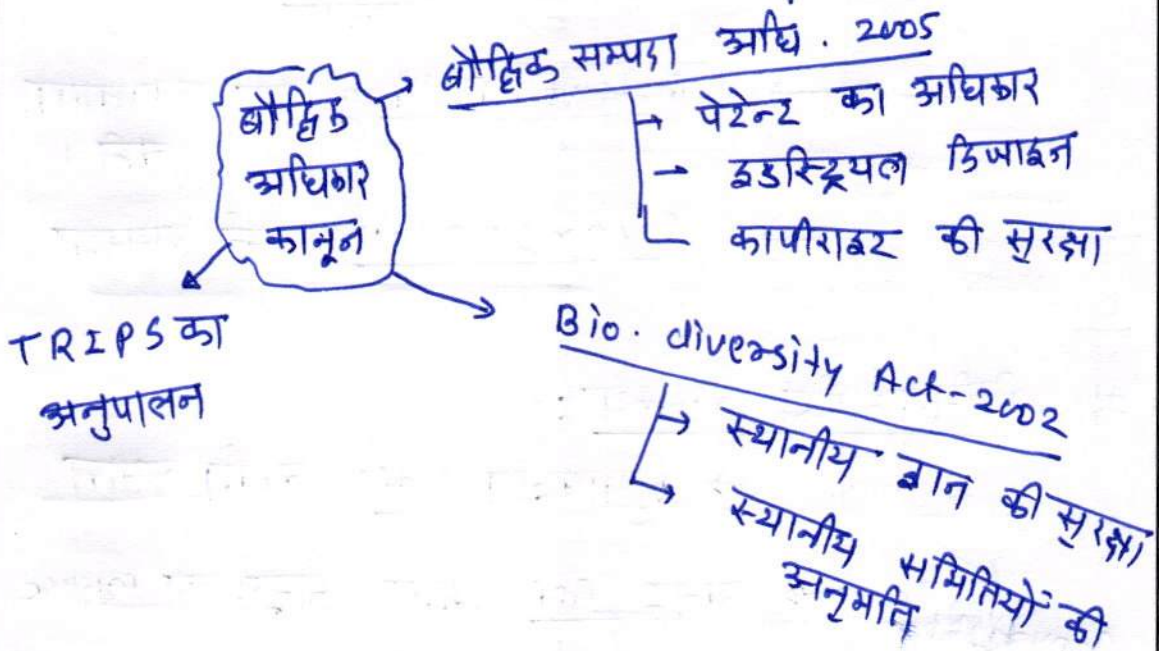 बौद्धिक सम्पदा अधि. 2005
→ पेटेन्ट का अधिकार
→ इडस्ट्रियल डिजाइन
कापीराइट की सुरक्षा
बौद्धिक
अधिकार
कानून
TRIPS का
अनुपालन
Bio. diversity Act-2002
→ स्थानीय ज्ञान की सुरक्षा
→ स्थानीय समितियों की
अनुमति